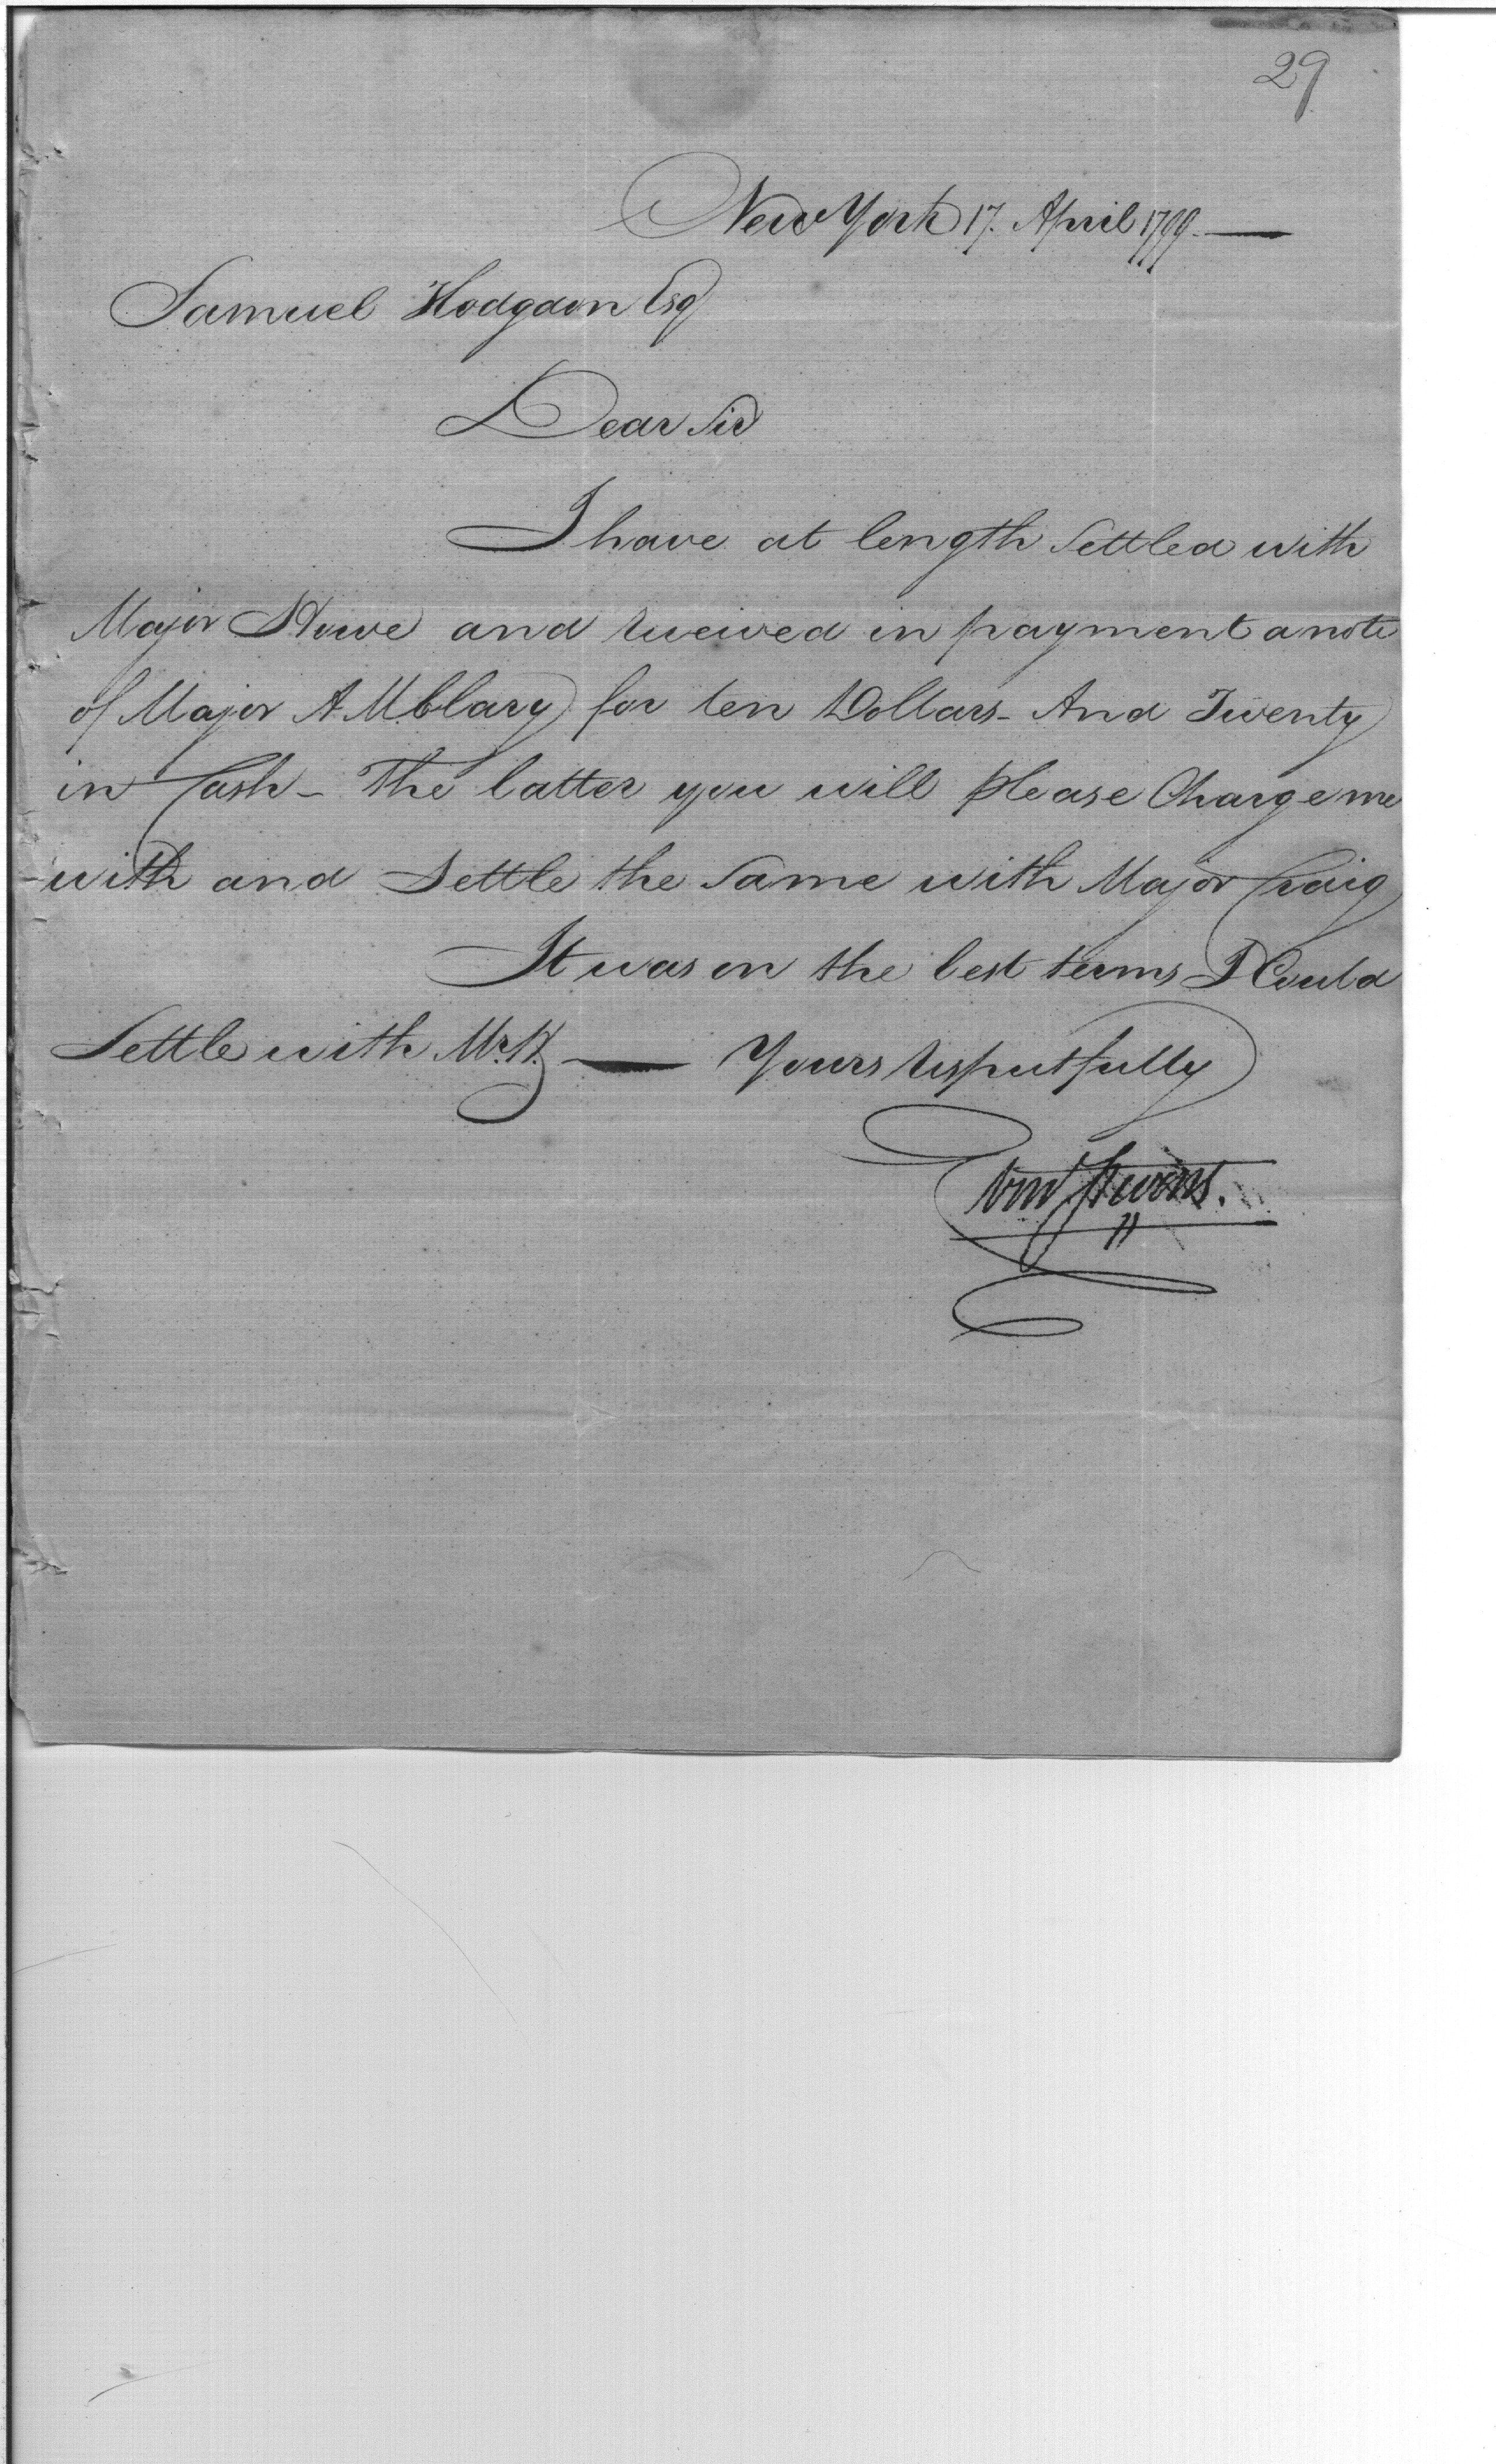 29
New York 17. April 1799.
Samuel Hodgdon Esq
Dear Sir
I have at length Settled with
Major Howe and received in payment a note
of Major A. McClary for ten Dollars - And Twenty
in Cash - The latter you will please Charge me
with and Settle the Same with Major Craig
It was on the best terms I Could
Settle with Mr. H. — Yours respectfully
Wm Stevens.